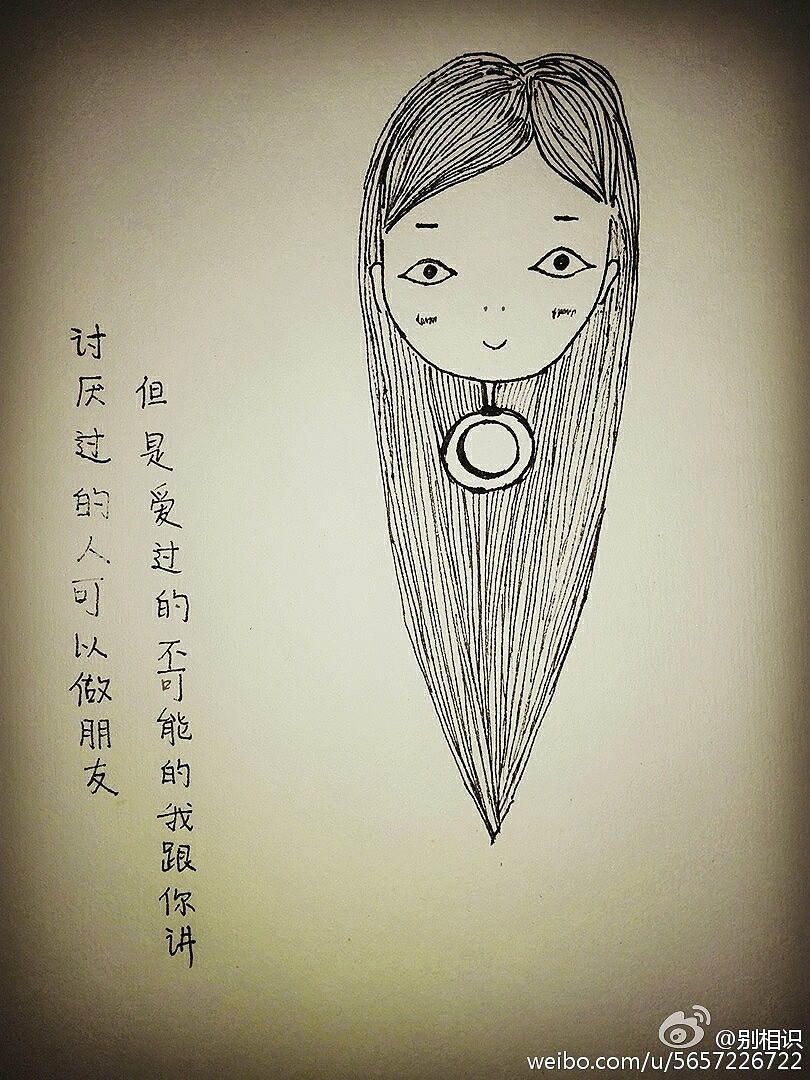 讨厌过的人可以做朋友
但是爱过的不可能的我跟你讲
@别相识
weibo.com/u/5657226722